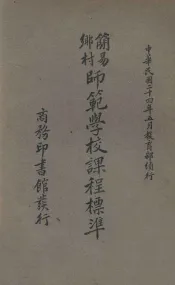 中華民國二十四年五月教育部頒行
簡易
鄉村
師範學校課程標準
商務印書館發行